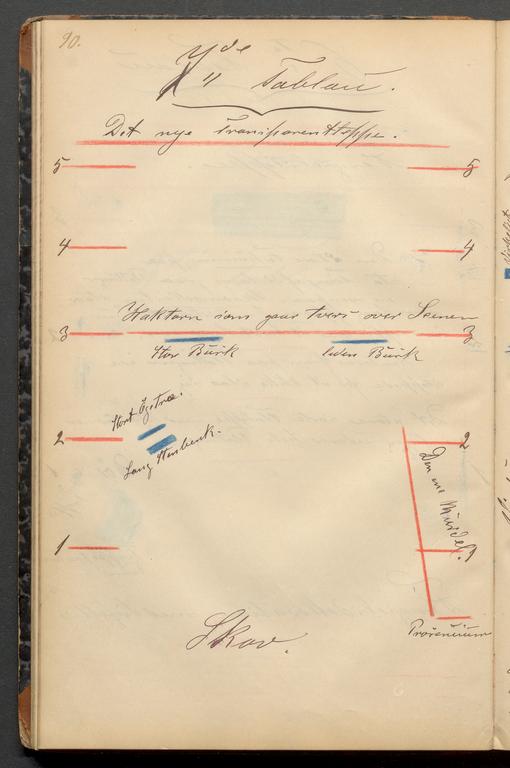 90.
Yde
X" Tablau.
Det nye Transparenttæppe.
5 5
4 4
Haktorn som gaar tvers over Scenen
3 3
Stor Busk liden Busk
Stort Egetræ.
2 2
Lang Stenbenk.
Den ene Muurdel.
1 1
Proscenium
Skov.